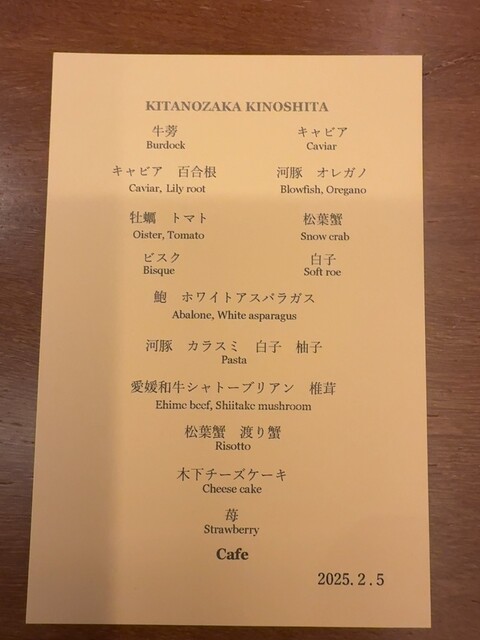 KITANOZAKA KINOSHITA
牛蒡 キャビア
Burdock Caviar
キャビア 百合根 河豚 オレガノ
Caviar, Lily root Blowfish, Oregano
牡蠣 トマト 松葉蟹
Oister, Tomato Snow crab
ビスク 白子
Bisque Soft roe
鮑 ホワイトアスパラガス
Abalone, White asparagus
河豚 カラスミ 白子 柚子
Pasta
愛媛和牛シャトーブリアン 椎茸
Ehime beef, Shiitake mushroom
松葉蟹 渡り蟹
Risotto
木下チーズケーキ
Cheese cake
苺
Strawberry
Cafe
2025.2.5